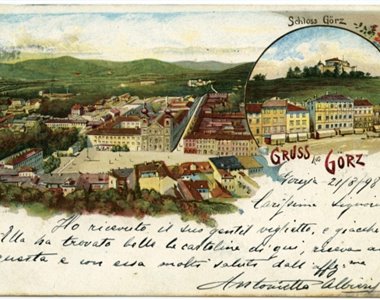 Schloss Görz
GRUSS aus GÖRZ
Gorizia 21/8/98
Carissima Signorina
Ho ricevuto il suo gentil viglietto, e giacchè
Ella ha trovato belle le cartoline di qui, riceva a
questa e con essa molti saluti dall' aff ma
Antonietta